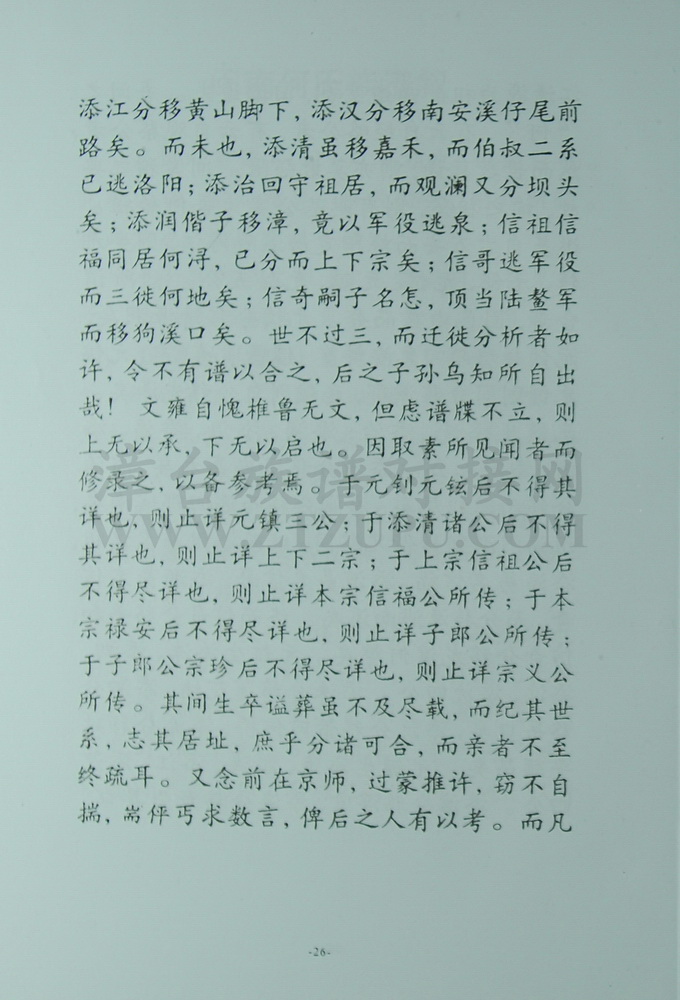 添江分移黄山脚下，添汉分移南安溪仔尾前
路矣。而未也，添清虽移嘉禾，而伯叔二系
已逃洛阳；添治回守祖居，而观澜又分坝头
矣；添润偕子移漳，竟以军役逃泉；信祖信
福同居何浔，已分而上下宗矣；信哥逃军役
而三徙何地矣；信奇嗣子名怎，顶当陆鳌军
而移狗溪口矣。世不过三，而迁徙分析者如
许，令不有谱以合之，后之子孙乌知所自出
哉！ 文雍自愧椎鲁无文，但虑谱牒不立，则
上无以承，下无以启也。因取素所见闻者而
修录之，以备参考焉。于元钊元铉后不得其
详也，则止详元镇三公；于添清诸公后不得
其详也，则止详上下二宗；于上宗信祖公后
不得尽详也，则止详本宗信福公所传；于本
宗禄安后不得尽详也，则止详子郎公所传；
于子郎公宗珍后不得尽详也，则止详宗义公
所传。其间生卒谥葬虽不及尽载，而纪其世
系，志其居址，庶乎分诸可合，而亲者不至
终疏耳。又念前在京师，过蒙推许，窃不自
揣，耑伻丐求数言，俾后之人有以考。而凡
漳台族谱对接网
WWW.ZTZUPU.COM
-26-